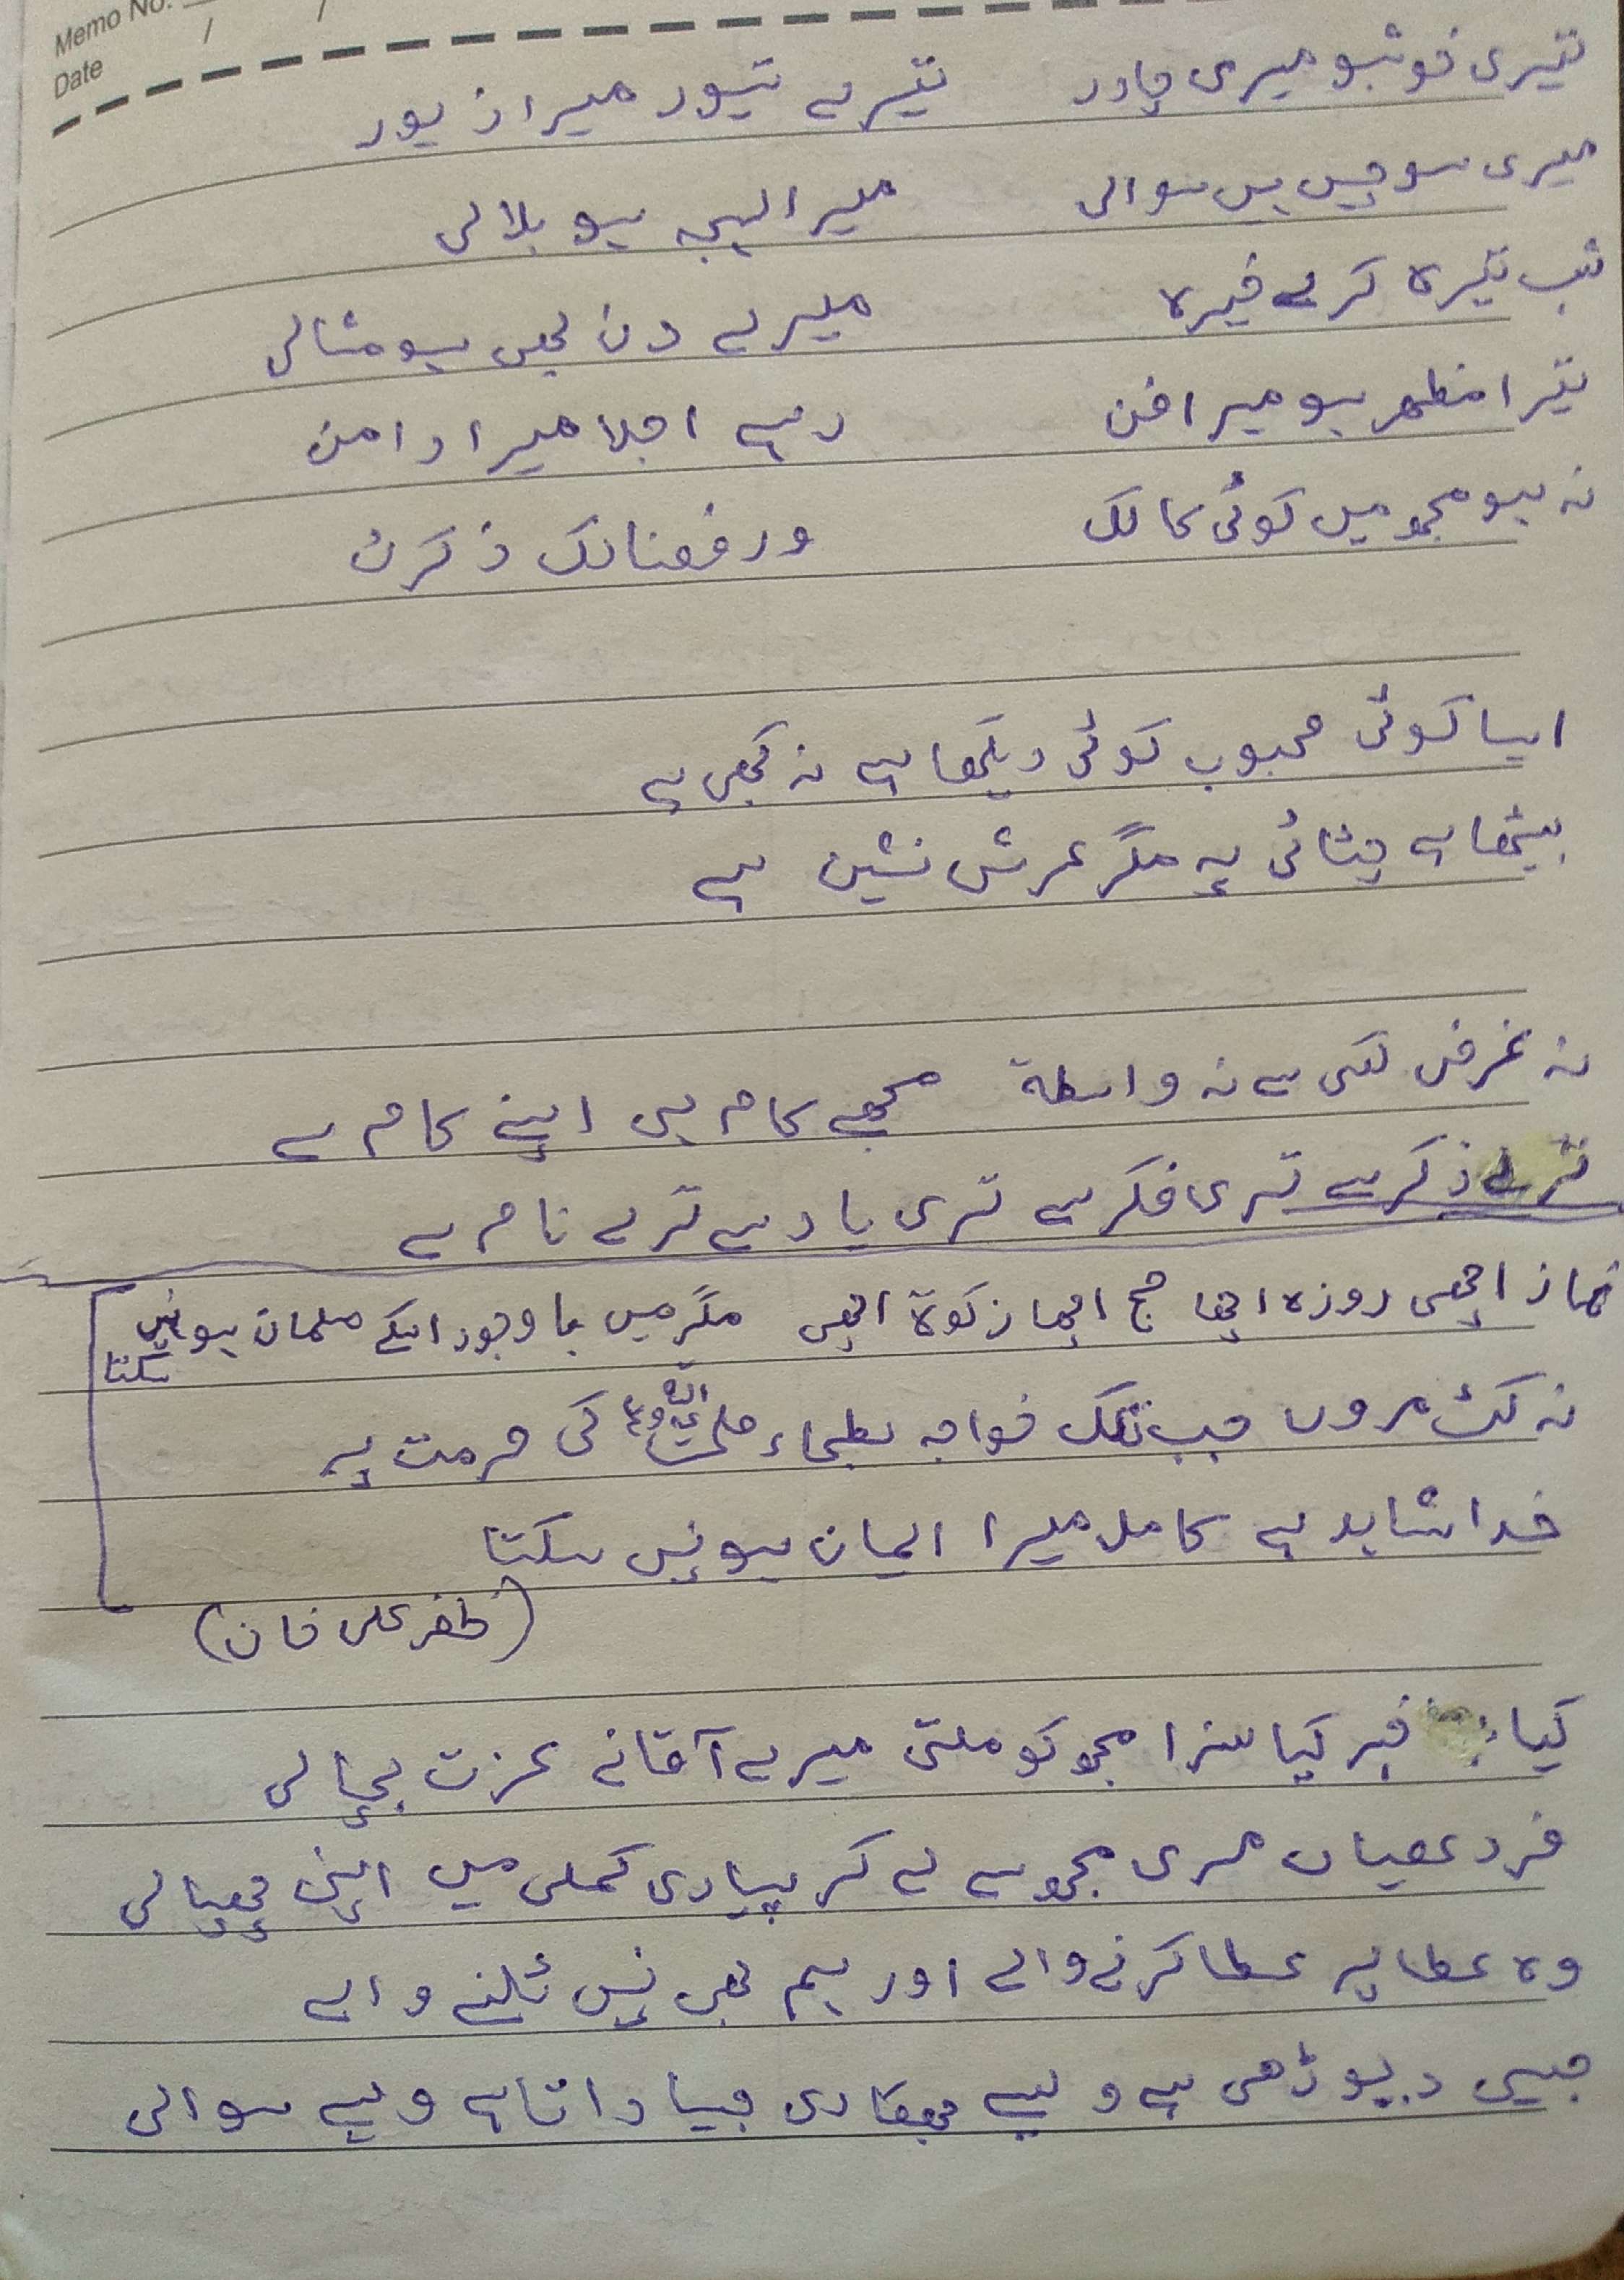 Memo No.
Date / /
تیری خوشبو میری چادر تیرے تیور میرا زیور
میری سوچیں ہیں سوالی میرا لہجہ ہو بلالی
شب تیرہ کرے خیرہ میرے دن بھی ہو مثالی
تیرا مظہر ہو میرا فن رہے اجلا میرا دامن
نہ ہو مجھ میں کوئی کالک ورفعنا لک ذکرک
ایسا کوئی محبوب کوئی دیکھا ہے نہ کبھی ہے
بیٹھا ہے چٹائی پہ مگر عرش نشین ہے
نہ غرض کسی سے نہ واسطة مجھے کام ہی اپنے کام سے
ترے ذکر سے تری فکر سے تری یاد سے ترے نام سے
نماز اچھی روزہ اچھا حج اچھا زکوة اچھی مگر میں باوجود اسکے مسلمان ہو نہیں سکتا
نہ کٹ مروں جب تک خواجہ بطحاء صلی اللہ کی حرمت پہ
خدا شاہد ہے کامل میرا ایمان ہو نہیں سکتا
(ظفر علی خان)
کیا خبر کیا سزا مجھ کو ملتی میرے آقا نے عزت بچا لی
فرد عصیاں مری مجھ سے لے کر پیاری کملی میں اپنی چھپا لی
وہ عطا پر عطا کرنے والے اور ہم بھی نہیں ٹلنے والے
جیسی دیوڑھی ہے ویسے بھکاری جیسا داتا ہے ویسے سوالی